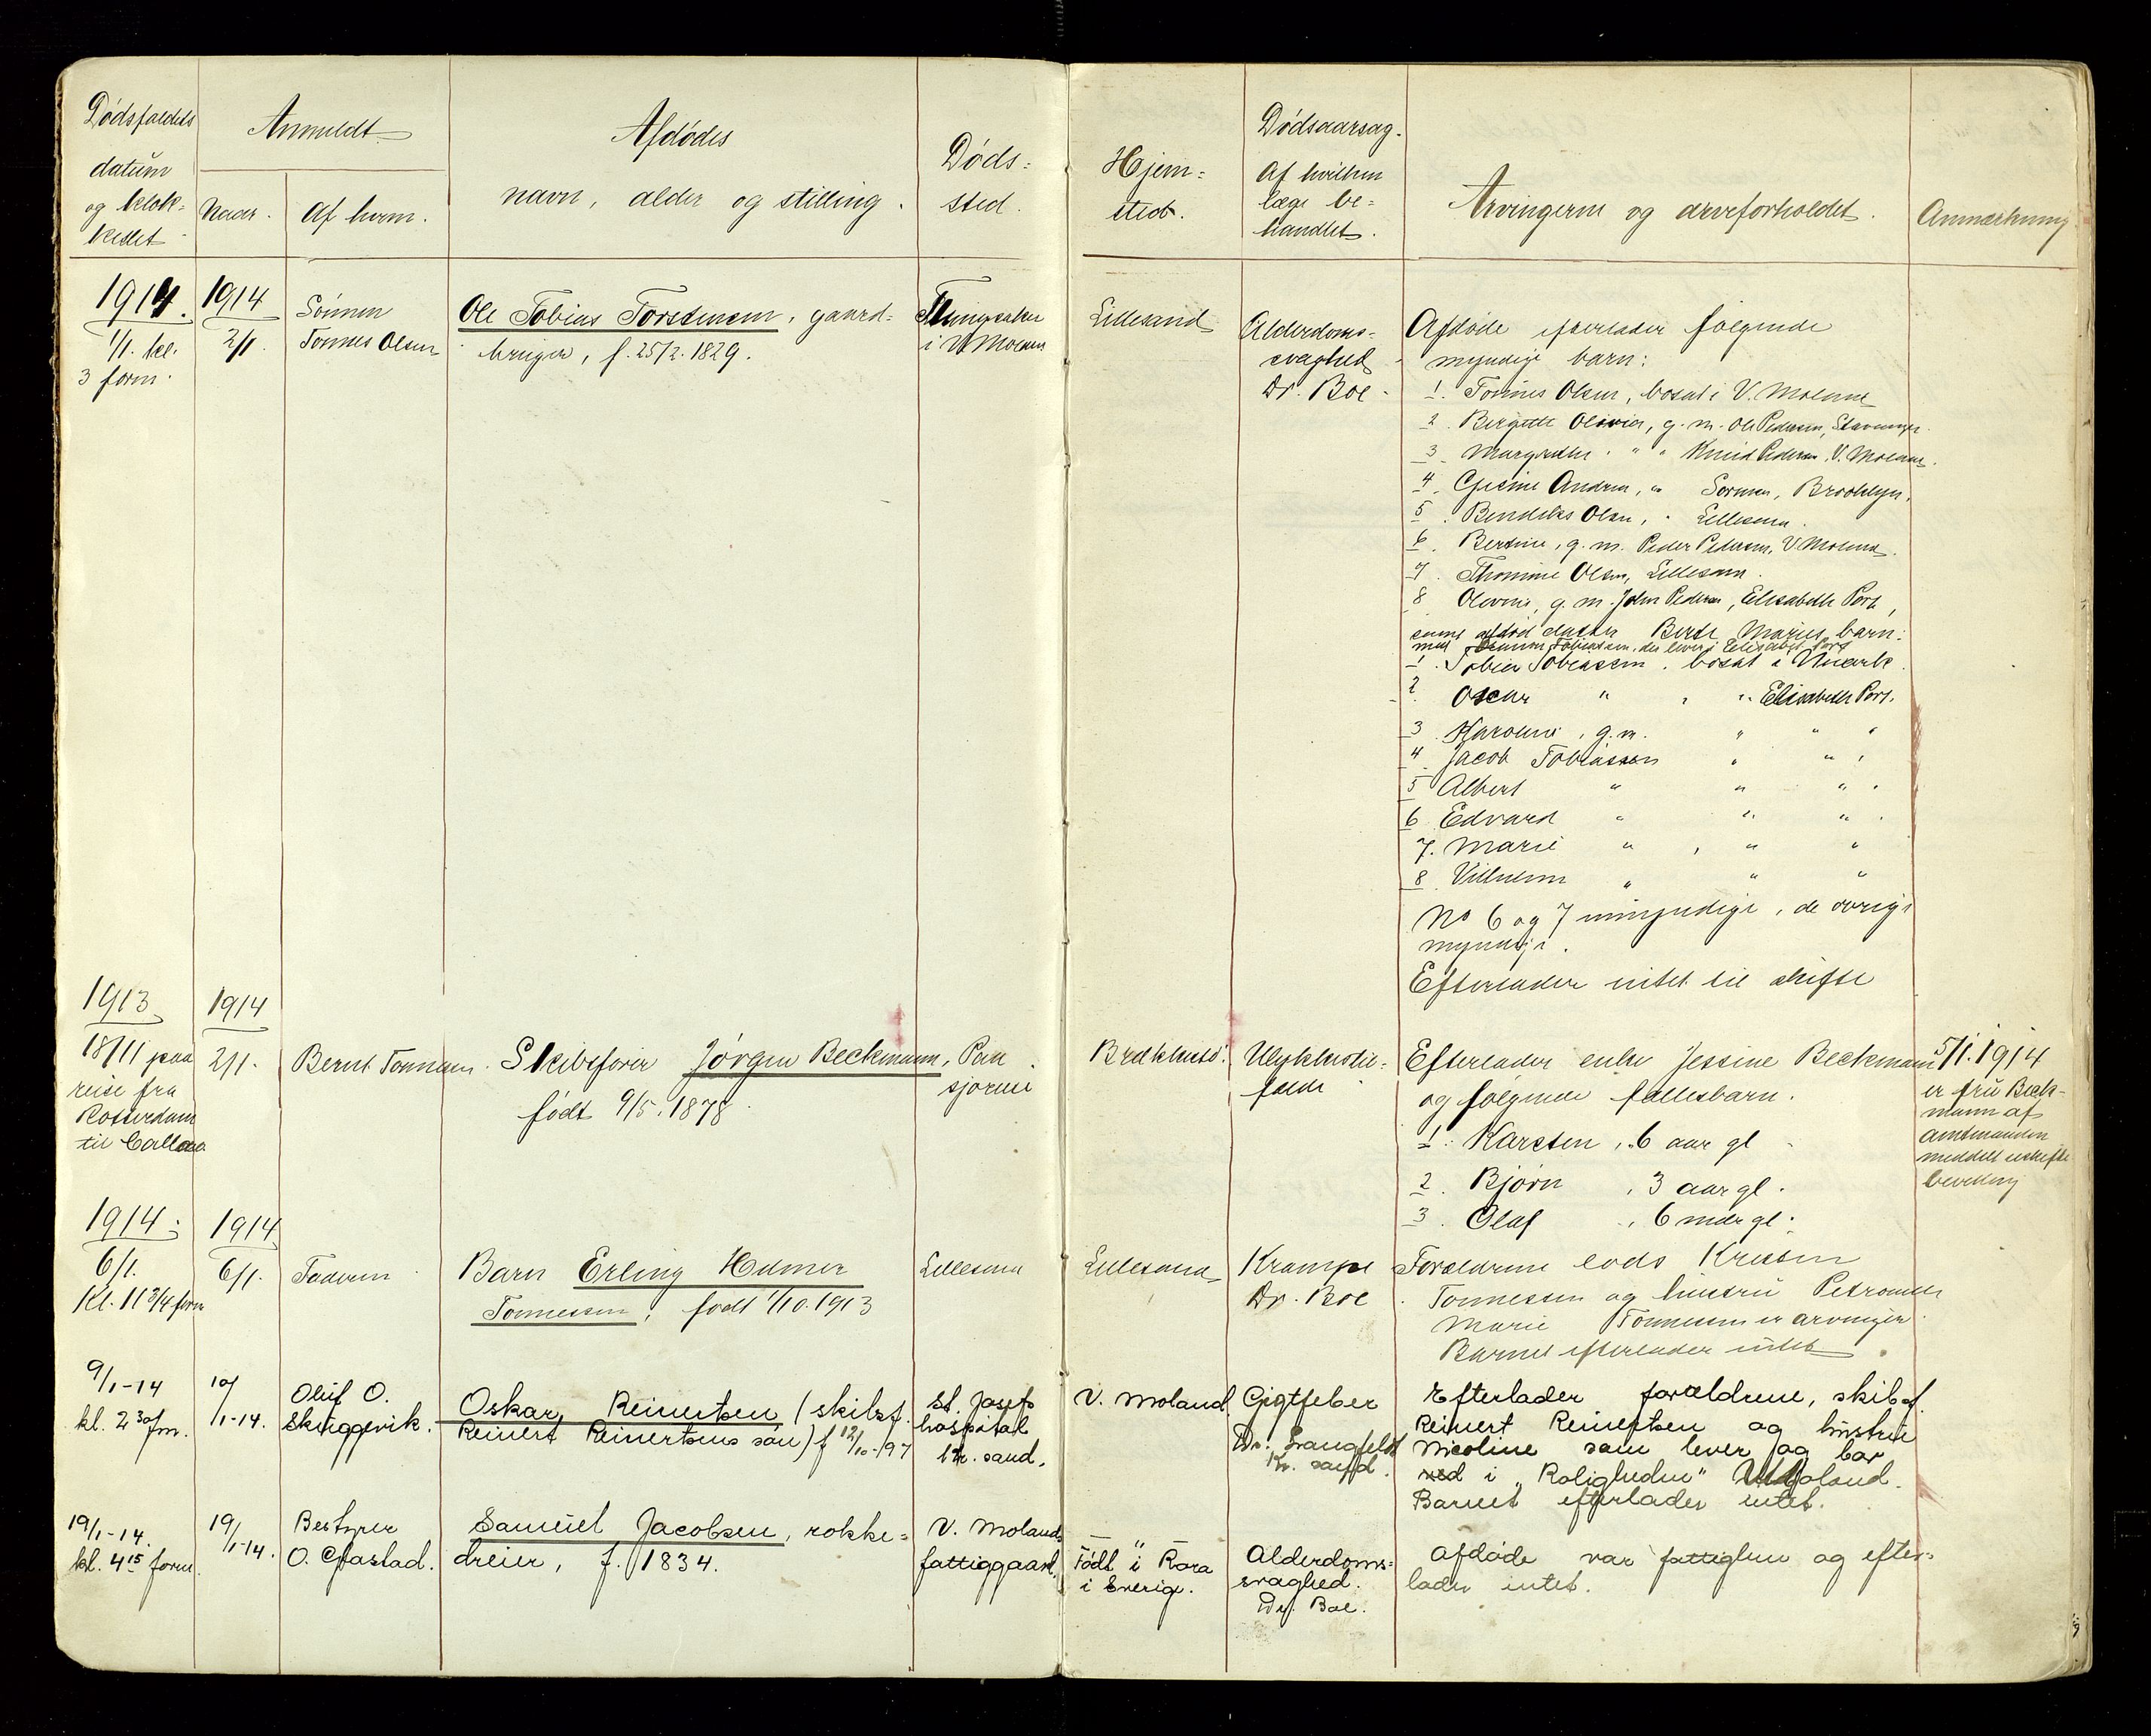 Dødsfaldets
datum
og klok-
keslet
Anmeldt
Naar.
Af hvem.
Afdødes
navn, alder og stilling.
Døds-
sted.
Hjem-
sted.
Dødsaarsag.
Af hvilken
læge be-
handlet.
Arvingerne og arveforholdet.
Anmærkning
1914.
1/1. kl.
3 form.
1914
2/1.
Sønnen
Tønnes Olsen
Ole Tobias Torstensen, gaard-
bruger, f. 25/2. 1829.
i V. Moland
Lillesand
Alderdoms-
svaghed
Dr. Boe
Afdøde efterlader følgende
myndige barn:
1. Tønnes Olsen, bosat i V. Moland
2. Bergitte Olivia, g. m. Ole Pedersen, Stavanger.
3. Margrethe " " Knud Pedersen, V. Moland.
4. Gusine Andrea, " Sørensen, Brooklyn.
5. Bendiks Olsen, Lillesand.
6. Bertine, g. m. Peder Pedersen, V. Moland.
7. Thomine Olsen, Lillesand.
8 Olevine, g. m. John Pedersen, Elisabeth Port,
samt afdød datter Berte Maries barn:
med Tobiassen, der lever i Elisabet Port
1. Tobias Tobiassen, bosat i Nuark.
2. Oscar " " Elisabeth Port.
3. Karoline, g. m. " " "
4. Jacob Tobiassen " " "
5 Albert " " " "
6 Edvard " " " "
7. Marie " " "
8. Vilhelm " " "
No 6 og 7 umyndige, de øvrige
myndige.
Efterlader intet til skifte
1913
18/11 paa
reise fra
Rotterdam
til Callao
1914
2/1.
Bernt Tønnesen.
Skibsfører Jørgen Beckmann,
født 9/5. 1878.
Paa
sjøreise
Brækkestø.
Ulykkestil-
fælde
Efterlader enke Jessine Beckmann
og følgende fællesbarn.
1. Karsten, 6 aar gl
2. Bjørn, 3 aar gl.
3. Olaf, 6 mdr gl.
5/1. 1914
er fru Beck-
mann af
amtmanden
meddelt uskifte
bevilling
1914.
6/1.
Kl. 11 3/4 form
1914
6/1.
Faderen
Barn Erling Helmer
Tønnessen, født 1/10. 1913
Lillesand
Lillesand
Krampe
Dr. Boe
Forældrene lods Kristen
Tønnessen og hustru Petronelle
Marie Tønnessen er arvinger.
Barnet efterlader intet
9/1-14
kl. 2 30 fm.
10/1-14.
Oluf O.
Skuggevik.
Oskar Reinertsen (skibsf.
Reinert Reinertsens søn) f 12/10-97
St. Josefs
hospital
Kr. sand.
V. Moland.
Gigtfeber
Dr. Langfeldt
Kr. sand.
Efterlader forældrene, skibsf.
Reinert Reinertsen og hustru
Nicoline som lever og bor
ved i "Roligheden" V. Moland.
Barnet efterlader intet.
19/1-14.
kl. 4 15 form.
19/1-14.
Bestyrer
O. Ofastad.
Samuel Jacobsen, rokke-
dreier, f. 1834.
V. Molands
fattiggaard.
"
Født i Rora
i Sverige.
Alderdoms-
svaghed.
Dr. Boe.
Afdøde var fattiglem og efter-
lader intet.